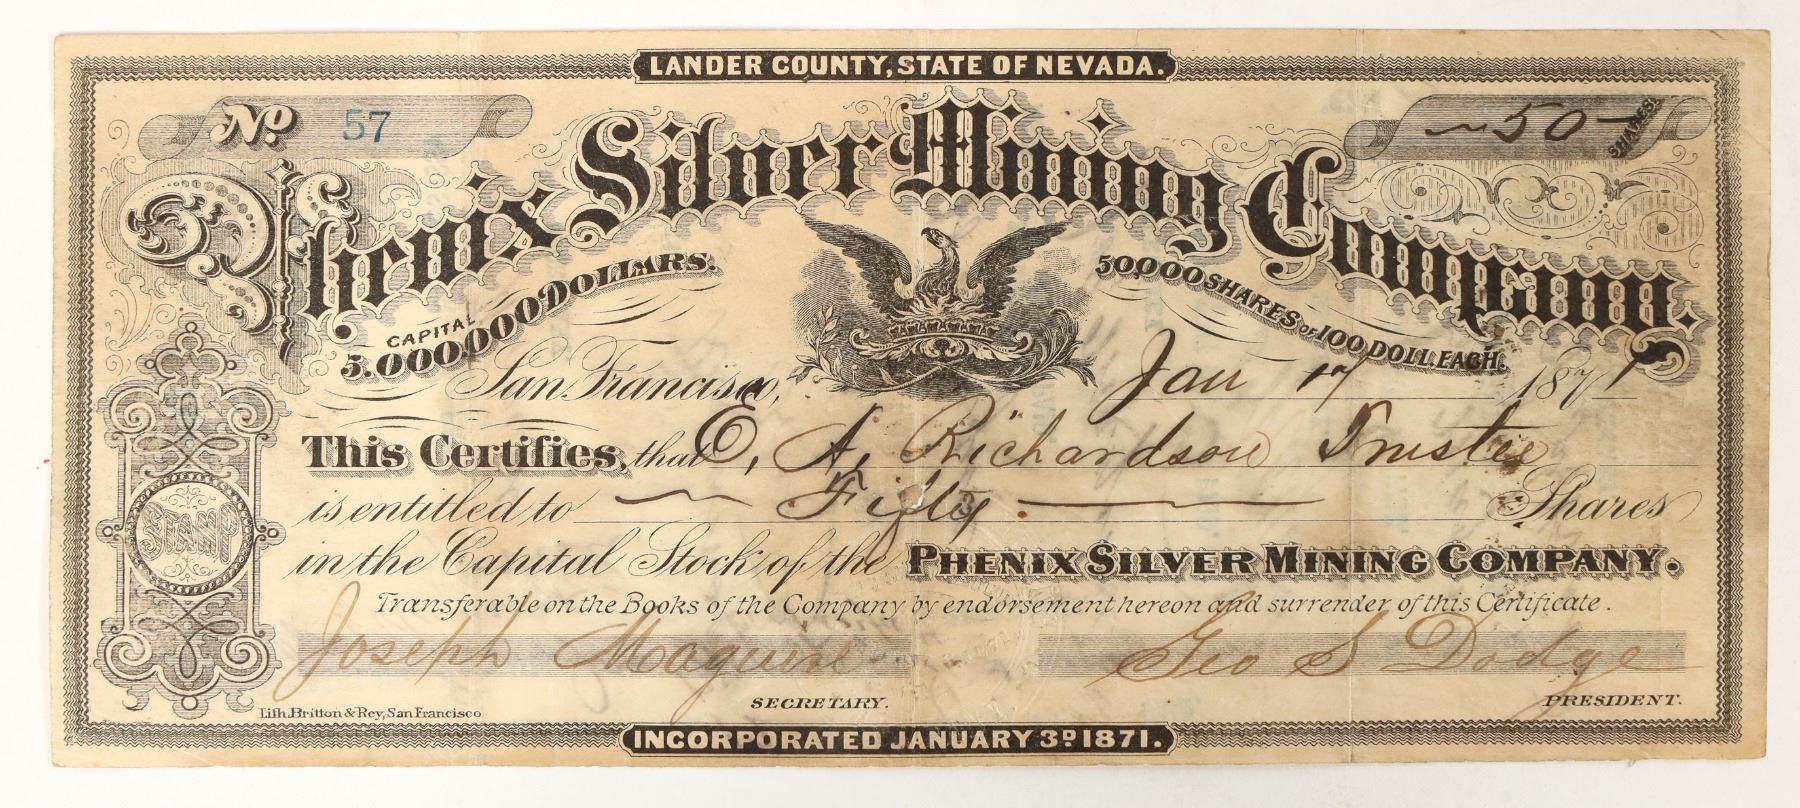 LANDER COUNTY, STATE OF NEVADA.
No 57
~50— SHARES.
Phenix Silver Mining Company.
CAPITAL 5.000,000 DOLLARS.
50,000 SHARES OF 100 DOLL. EACH.
San Francisco, Jan 17 1871
This Certifies, that E. A. Richardson Trustee
is entitled to Fifty Shares
in the Capital Stock of the PHENIX SILVER MINING COMPANY.
Transferable on the Books of the Company by endorsement hereon and surrender of this Certificate.
STAMP
Joseph Maguire SECRETARY.
Geo S Dodge PRESIDENT.
Lith. Britton & Rey, San Francisco
INCORPORATED JANUARY 3D 1871.